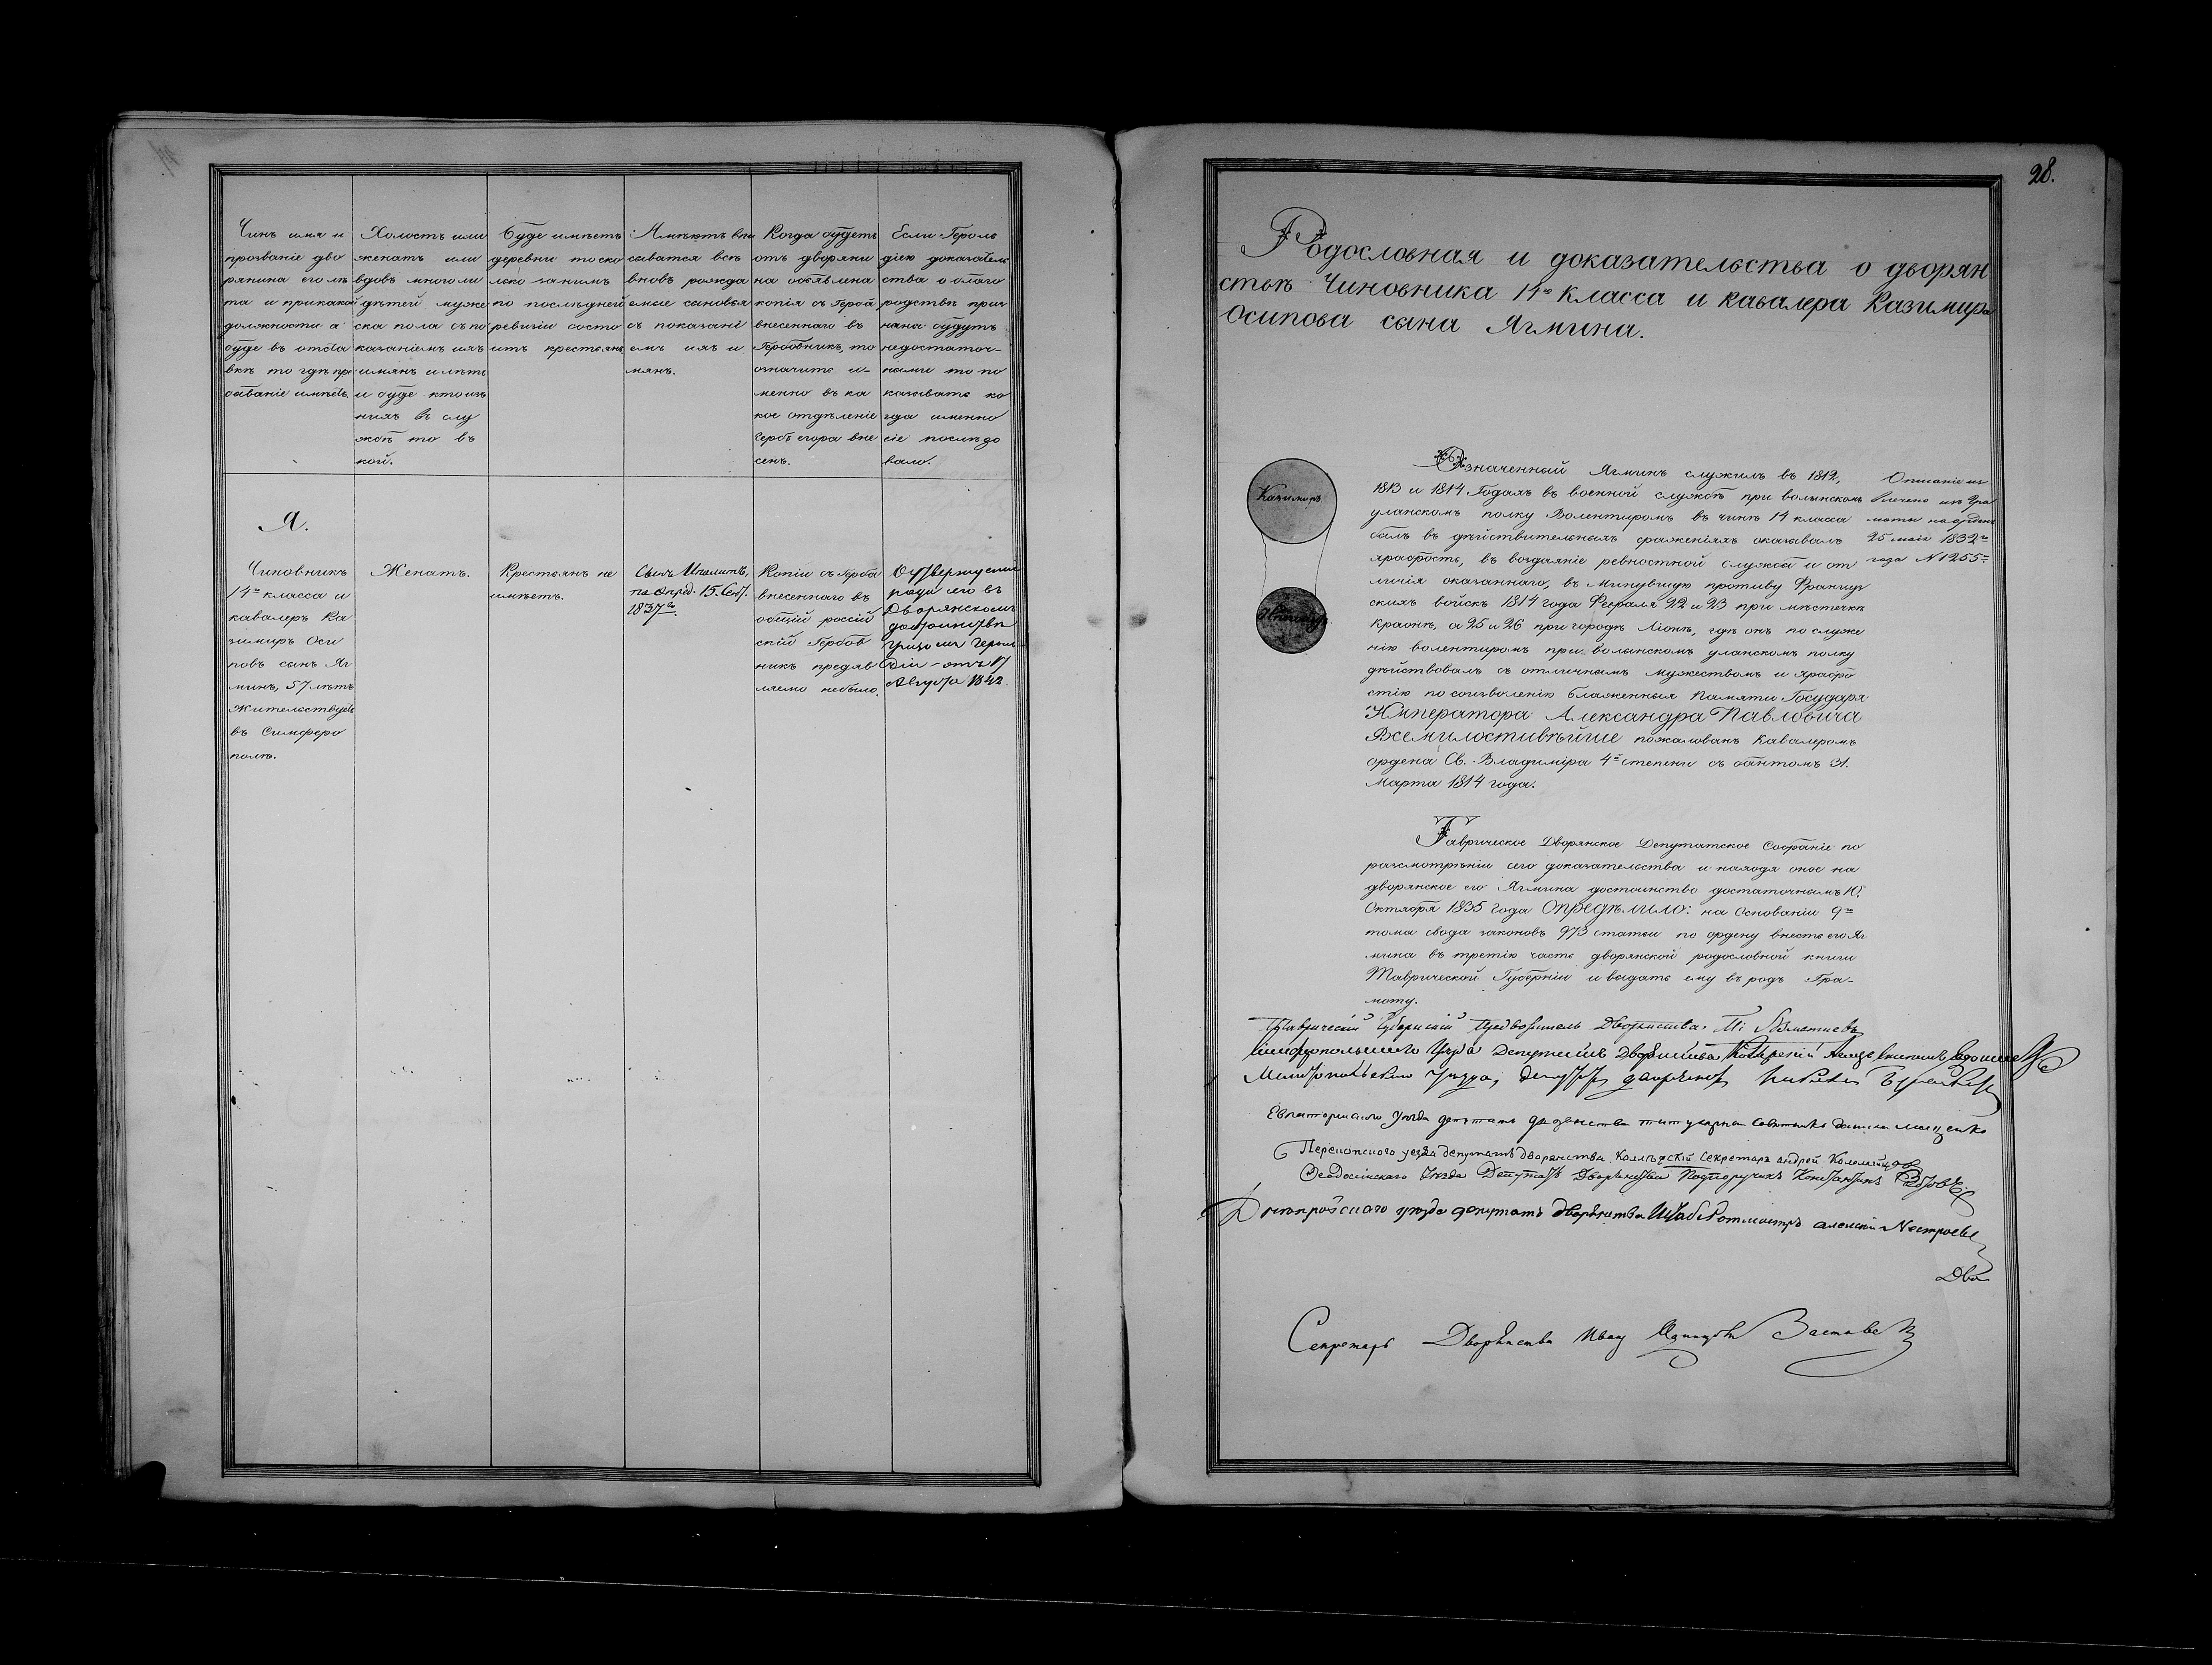 Чинъ имя и
прозваніе дво
рянина его лѣ
та и при какой
должности а
буде въ отста
вкѣ то гдѣ пре
бываніе имѣетъ.
Холостъ или
женатъ или
вдовъ много ли
дѣтей муже
ска пола съ по
казаніемъ ихъ
имянъ и лѣтъ
и буде кто изъ
нихъ въ слу
жбѣ то въ
кой.
Буде имѣетъ
деревни то ско
лько за нимъ
по послѣдней
ревизіи состо
итъ крестьянъ
Имѣютъ впи
сыватся всѣ
вновь рожда
емые сыновья
съ показані
емъ ихъ и
мянъ.
Когда будетъ
отъ дворяни
на объявлена
копія съ Герба
внесеннаго въ
Гербовникъ, то
означить и-
менно въ ка
кое отдѣленіе
Гербъ его вне
сенъ.
Если Героль
діею доказатель
ства о благо
родствѣ приз
наны будутъ
недостаточ-
ными то по
казывать ко
гда именно
сіе послѣдо
вало.
Я.
Чиновникъ
14го класса и
кавалеръ Ка
зимиръ Оси
повъ сынъ Яг
минъ, 57 лѣтъ
Жительствуетъ
въ Симферо
полѣ.
Женатъ.
Крестьянъ не
имѣетъ.
Сынъ Иполитъ,
по опред. 15. Сент.
1837го
Копіи съ Герба
внесеннаго въ
общій россій
скій Гербов
никъ предъяв
ляемо небыло.
Дворянскомъ
отъ 17
Августа 1842
28.
Родословная и доказательства о дворян
ствѣ Чиновника 14го класса и кавалера Казимира
Осипова сына Ягмина.
Казимиръ
Иполитъ
Означенный Ягминъ служилъ въ 1812,
1813 и 1814 Годахъ въ военной службѣ при волынскомъ
уланскомъ полку Волентиромъ въ чинѣ 14 класса
былъ въ дѣйствительныхъ сраженіяхъ оказывалъ
храбрость, въ воздаяніе ревностной службы и от
личія оказаннаго, въ минувшую противу Француз
скихъ войскъ 1814 года Февраля 22 и 23 при мѣстечкѣ
Краонѣ, а 25 и 26 при городѣ Ліонѣ, гдѣ онъ по служе
нію волентиромъ при волынскомъ уланскомъ полку
дѣйствовалъ съ отличнымъ мужествомъ и храбро
стію по соизволенію блаженныя памяти Государя
Императора Александра Павловича
Всемилостивѣйше пожалованъ Кавалеромъ
ордена Св. Владиміра 4й степени съ бантомъ 31.
Марта 1814 года.
Описаніе из
влечено изъ Гра
моты на орденъ
25 маія 1832го
года N 1255го
Таврическое Дворянское Депутатское Собраніе по
разсмотрѣніи сего доказательства и находя оное на
дворянское его Ягмина достоинство достаточнымъ 10.
Октября 1835 года Опредѣлило: на Основаніи 9го
тома свода законовъ 973 статьи по ордену внесть его Яг
мина въ третію часть дворянской родословной книги
Таврической Губерніи и выдать ему въ родъ Гра-
моту.
Таврический Губернский Предводитель Дворянства
Симферопольского Уѣзда Депутатъ Дворянства
Мелитопольского Уѣзда, депутатъ дворянства
Евпаторийского Уѣзда депутатъ дворянства титулярный Советникъ
Перекопского уезда депутатъ дворянства Коллежскій Секретарь андрей
Феодосійскаго Уѣзда Депутатъ Дворянства Подпоручикъ Константинъ
Днѣпровскаго уезда депутатъ дворянства Штабъ Ротмистръ алексей Нестроевъ
Два
Секретарь Дворянства Иван